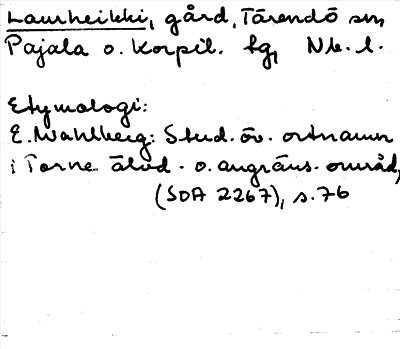 Laurheikki, gård, Tärendö sn,
Pajala o. Korpil. tg, Nb. l.
Etymologi:
E. Wahlberg: Stud. öv. ortnamn
i Torne älvd. o. angräns. områd,
(SOA 2267), s. 76